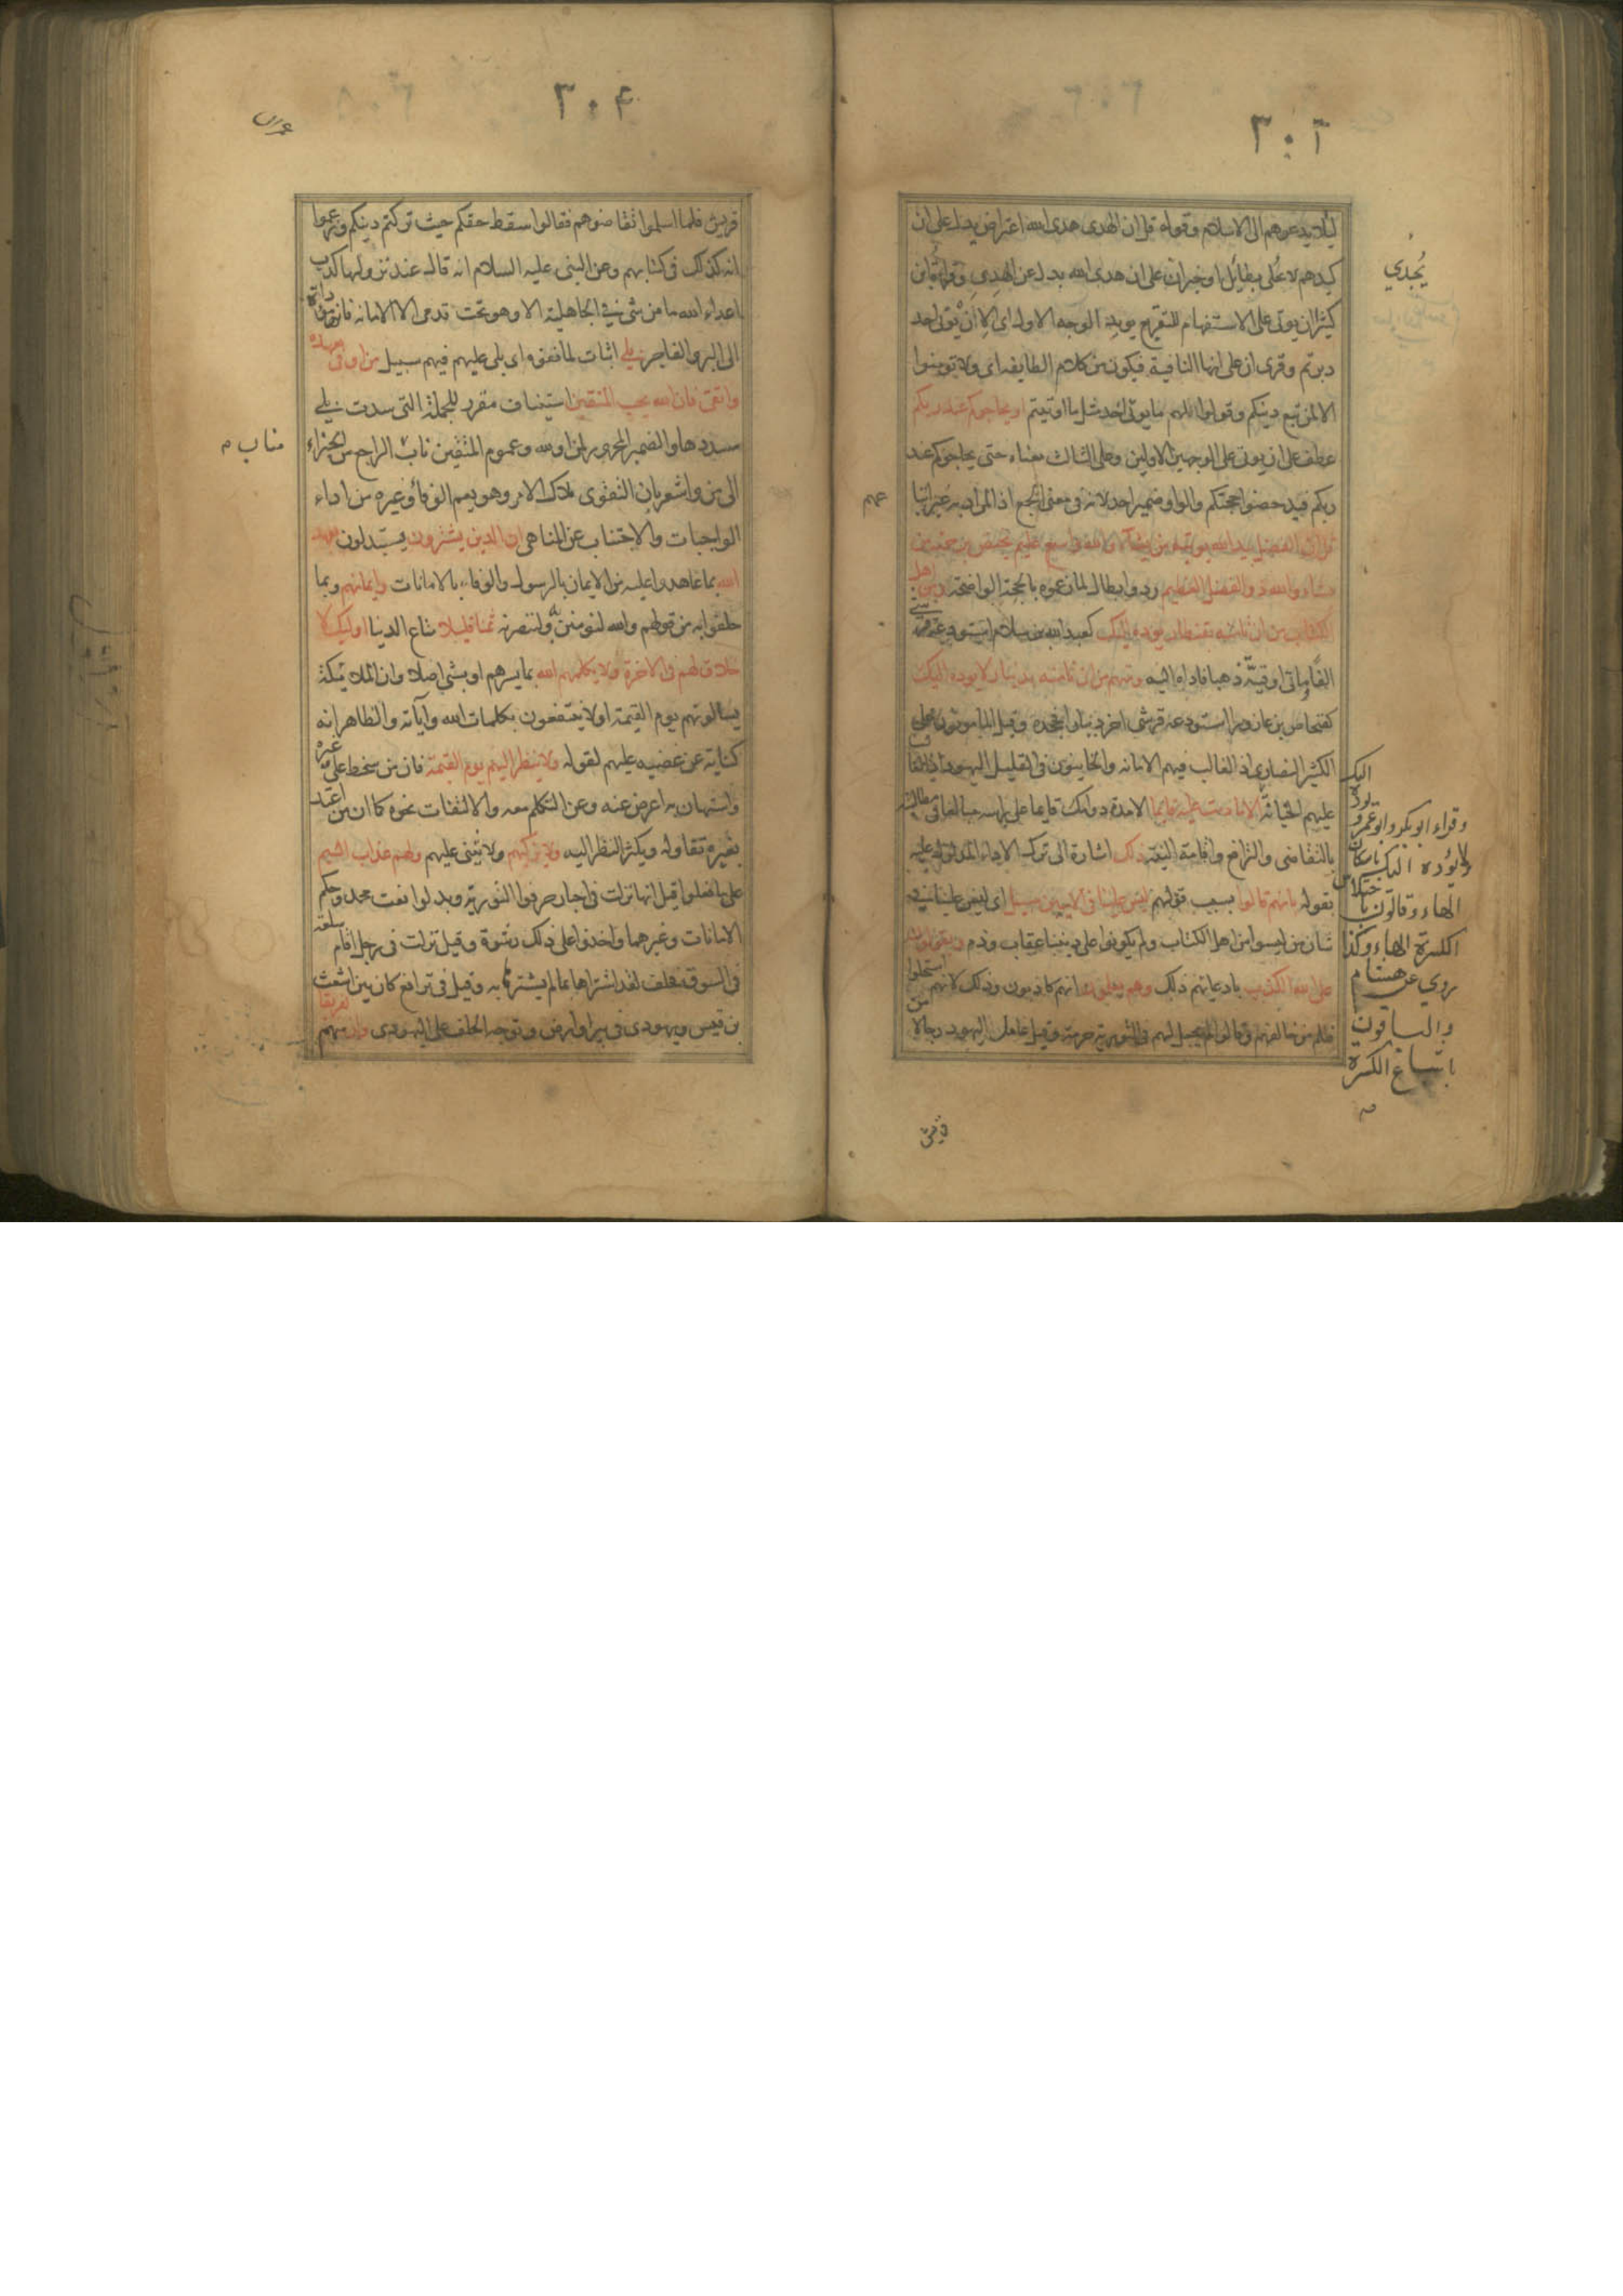 ٣٠٢
ليلا يدعوهم الى الاسلام وقوله قل ان الهدى هدى الله اعتراض يدل على ان
كيدهم لا على بطائل او خبر ان على ان هدى الله بدل عن الهدى وقراءة ابن
كثير ان يوتى على الاستفهام للتقريع يويد الوجه الاول اى الا ان يوتى احد
دبرتم وقرى ان على انها النافية فيكون من كلام الطايفه اى ولا تومنوا
الا لمن تبع دينكم وقولوا لهم ما يوتى احد مثل ما اوتيتم او يحاجوكم عند ربكم
عطف على ان يوتى على الوجهين الاولين وعلى الثالث معناه حتى يحاجوكم عند
ربكم فيدحضوا حجتكم والواو ضمير احد لانه فى معنى الجمع اذ المراد به غير اتبا
عهم
قل ان الفضل بيد الله يوتيه من يشآ والله واسع عليم يختص برحمته من
يشاء والله ذو الفضل العظيم رد وابطال لما زعموه بالحجة الواضحة ومن اهل
الكتاب من ان تامنه بقنطار يوده اليك كعبد الله بن سلام استودعه قرشى
الفا وماتى اوقية ذهبا فاداه اليه ومنهم من ان تامنه بدينار لا يوده اليك
كفنحاص بن عازورا استودعه قرشى اخر دينارا فجحده وقيل المامونون على
الكثير النصارى اذ الغالب فيهم الامانه والخاينون فى القليل اليهود اذ الغالب
عليهم الخيانة الا ما دمت عليه قايما الا مدة دوامك قايما على راسه مبالغا فى مطالبته
بالتقاضى والترافع واقامة البينة ذلك اشارة الى ترك الاداء المدلول عليه
بقوله بانهم قالوا بسبب قولهم ليس علينا فى الاميين سبيل اى ليس علينا فى
شان من ليسوا من اهل الكتاب ولم يكونوا على ديننا عقاب وذم ويقولون
على الله الكذب بادعايهم ذلك وهم يعلمون انهم كاذبون وذلك لانهم استحلوا
ظلم من خالفهم وقالوا لم يجعل لهم فى التورية حرمة وقيل عامل اليهود رجالا من
يُجدي
اليك
يوده
وقراء ابو بكر وابو عمرو
لا يؤده اليك باسكان
الهاء وقالون باختلاس
الكسرة الهاء وكذا
روي عن هشام
والباقون
باشباع الكسرة
قريش
٣٠٤
قريش فلما اسلموا تقاضوهم فقالوا سقط حقكم حيث تركتم دينكم وزعموا
انه كذلك فى كتابهم وعن النبى عليه السلام انه قال عند نزولها كذب
اعداء الله ما من شى فى الجاهلية الا وهو تحت قدمى الا الامانه فانها موداة
الى البر والفاجر بلى اثبات لما نفوه اى بلى عليهم فيهم سبيل من اوفى بعهده
واتقى فان الله يحب المتقين استيناف مقرر للجملة التى سدت بلى
مسدها والضمير المجرور لمن او لله وعموم المتقين ناب الراجع من الجزاء
مناب م
الى من واشعر بان التقوى ملاك الامر وهو يعم الوفا وغيره من اداء
الواجبات والاجتناب عن المناهى ان الذين يشترون يستبدلون بعهد
الله بما عاهدوا عليه من الايمان بالرسول والوفاء بالامانات وايمانهم وبما
حلفوا به من قولهم والله لنومنن به ولننصرنه ثمنا قليلا متاع الدينا اوليك لا
خلاق لهم فى الاخرة ولا يكلمهم الله بما يسرهم او بشى اصلا وان الملائكة
يسالونهم يوم القيمة او لا ينتفعون بكلمات الله وآياته والظاهر انه
كناية عن غضبه عليهم لقوله ولا ينظر اليهم يوم القيمة فان من سخط على غيره
واستهان به اعرض عنه وعن التكلم معه والالتفات نحوه كما ان من اعتد
بغيره تقاوله ويكثر النظر اليه ولا يزكيهم ولا يثنى عليهم ولهم عذاب اليم
على ما فعلوا قيل انها نزلت فى احبار حرفوا التورية وبدلوا نعت محمد وحكم
الامانات وغيرهما واخذوا على ذلك رشوة وقيل نزلت فى رجل اقام سلعة
فى السوق فحلف لقد اشتراها بما لم يشترها به وقيل فى ترافع كان بين اشعث
بن قيس ويهودى فى بير او ارض وتوجه الحلف على اليهودى وان منهم لفريقا